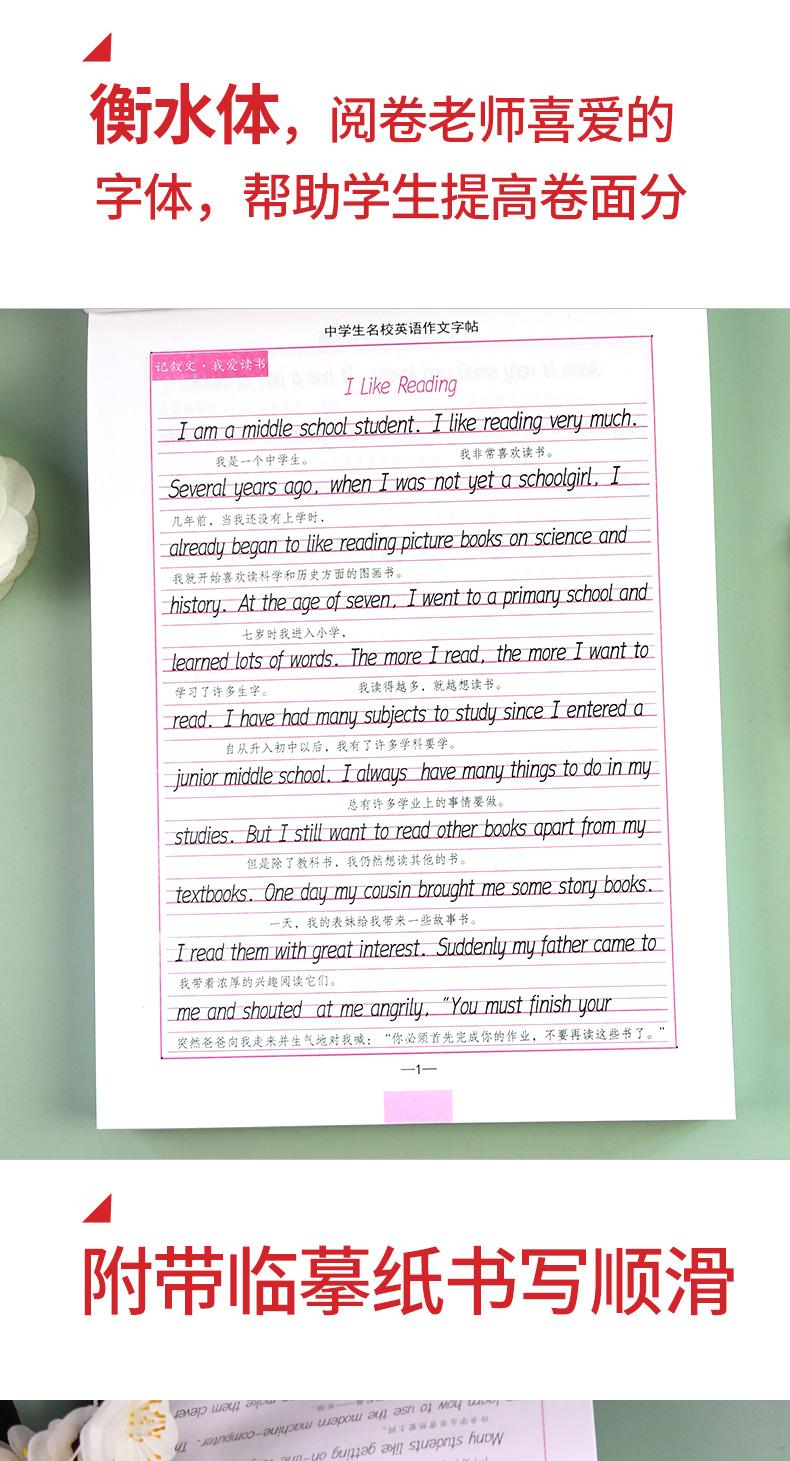 衡水体，阅卷老师喜爱的
字体，帮助学生提高卷面分
中学生名校英语作文字帖
记叙文·我爱读书
I Like Reading
I am a middle school student. I like reading very much.
我是一个中学生。 我非常喜欢读书。
Several years ago, when I was not yet a schoolgirl, I
几年前，当我还没有上学时，
already began to like reading picture books on science and
我就开始喜欢读科学和历史方面的图画书。
history. At the age of seven, I went to a primary school and
七岁时我进入小学，
learned lots of words. The more I read, the more I want to
学习了许多生字。 我读得越多，就越想读书。
read. I have had many subjects to study since I entered a
自从升入初中以后，我有了许多学科要学。
junior middle school. I always have many things to do in my
总有许多学业上的事情要做。
studies. But I still want to read other books apart from my
但是除了教科书，我仍然想读其他的书。
textbooks. One day my cousin brought me some story books.
一天，我的表妹给我带来一些故事书。
I read them with great interest. Suddenly my father came to
我带着浓厚的兴趣阅读它们。
me and shouted at me angrily, "You must finish your
突然爸爸向我走来并生气地对我喊：“你必须首先完成你的作业，不要再读这些书了。”
—1—
附带临摹纸书写顺滑
make them clever
learn how to use the modern machine-computer. Th
Many students like getting on-line